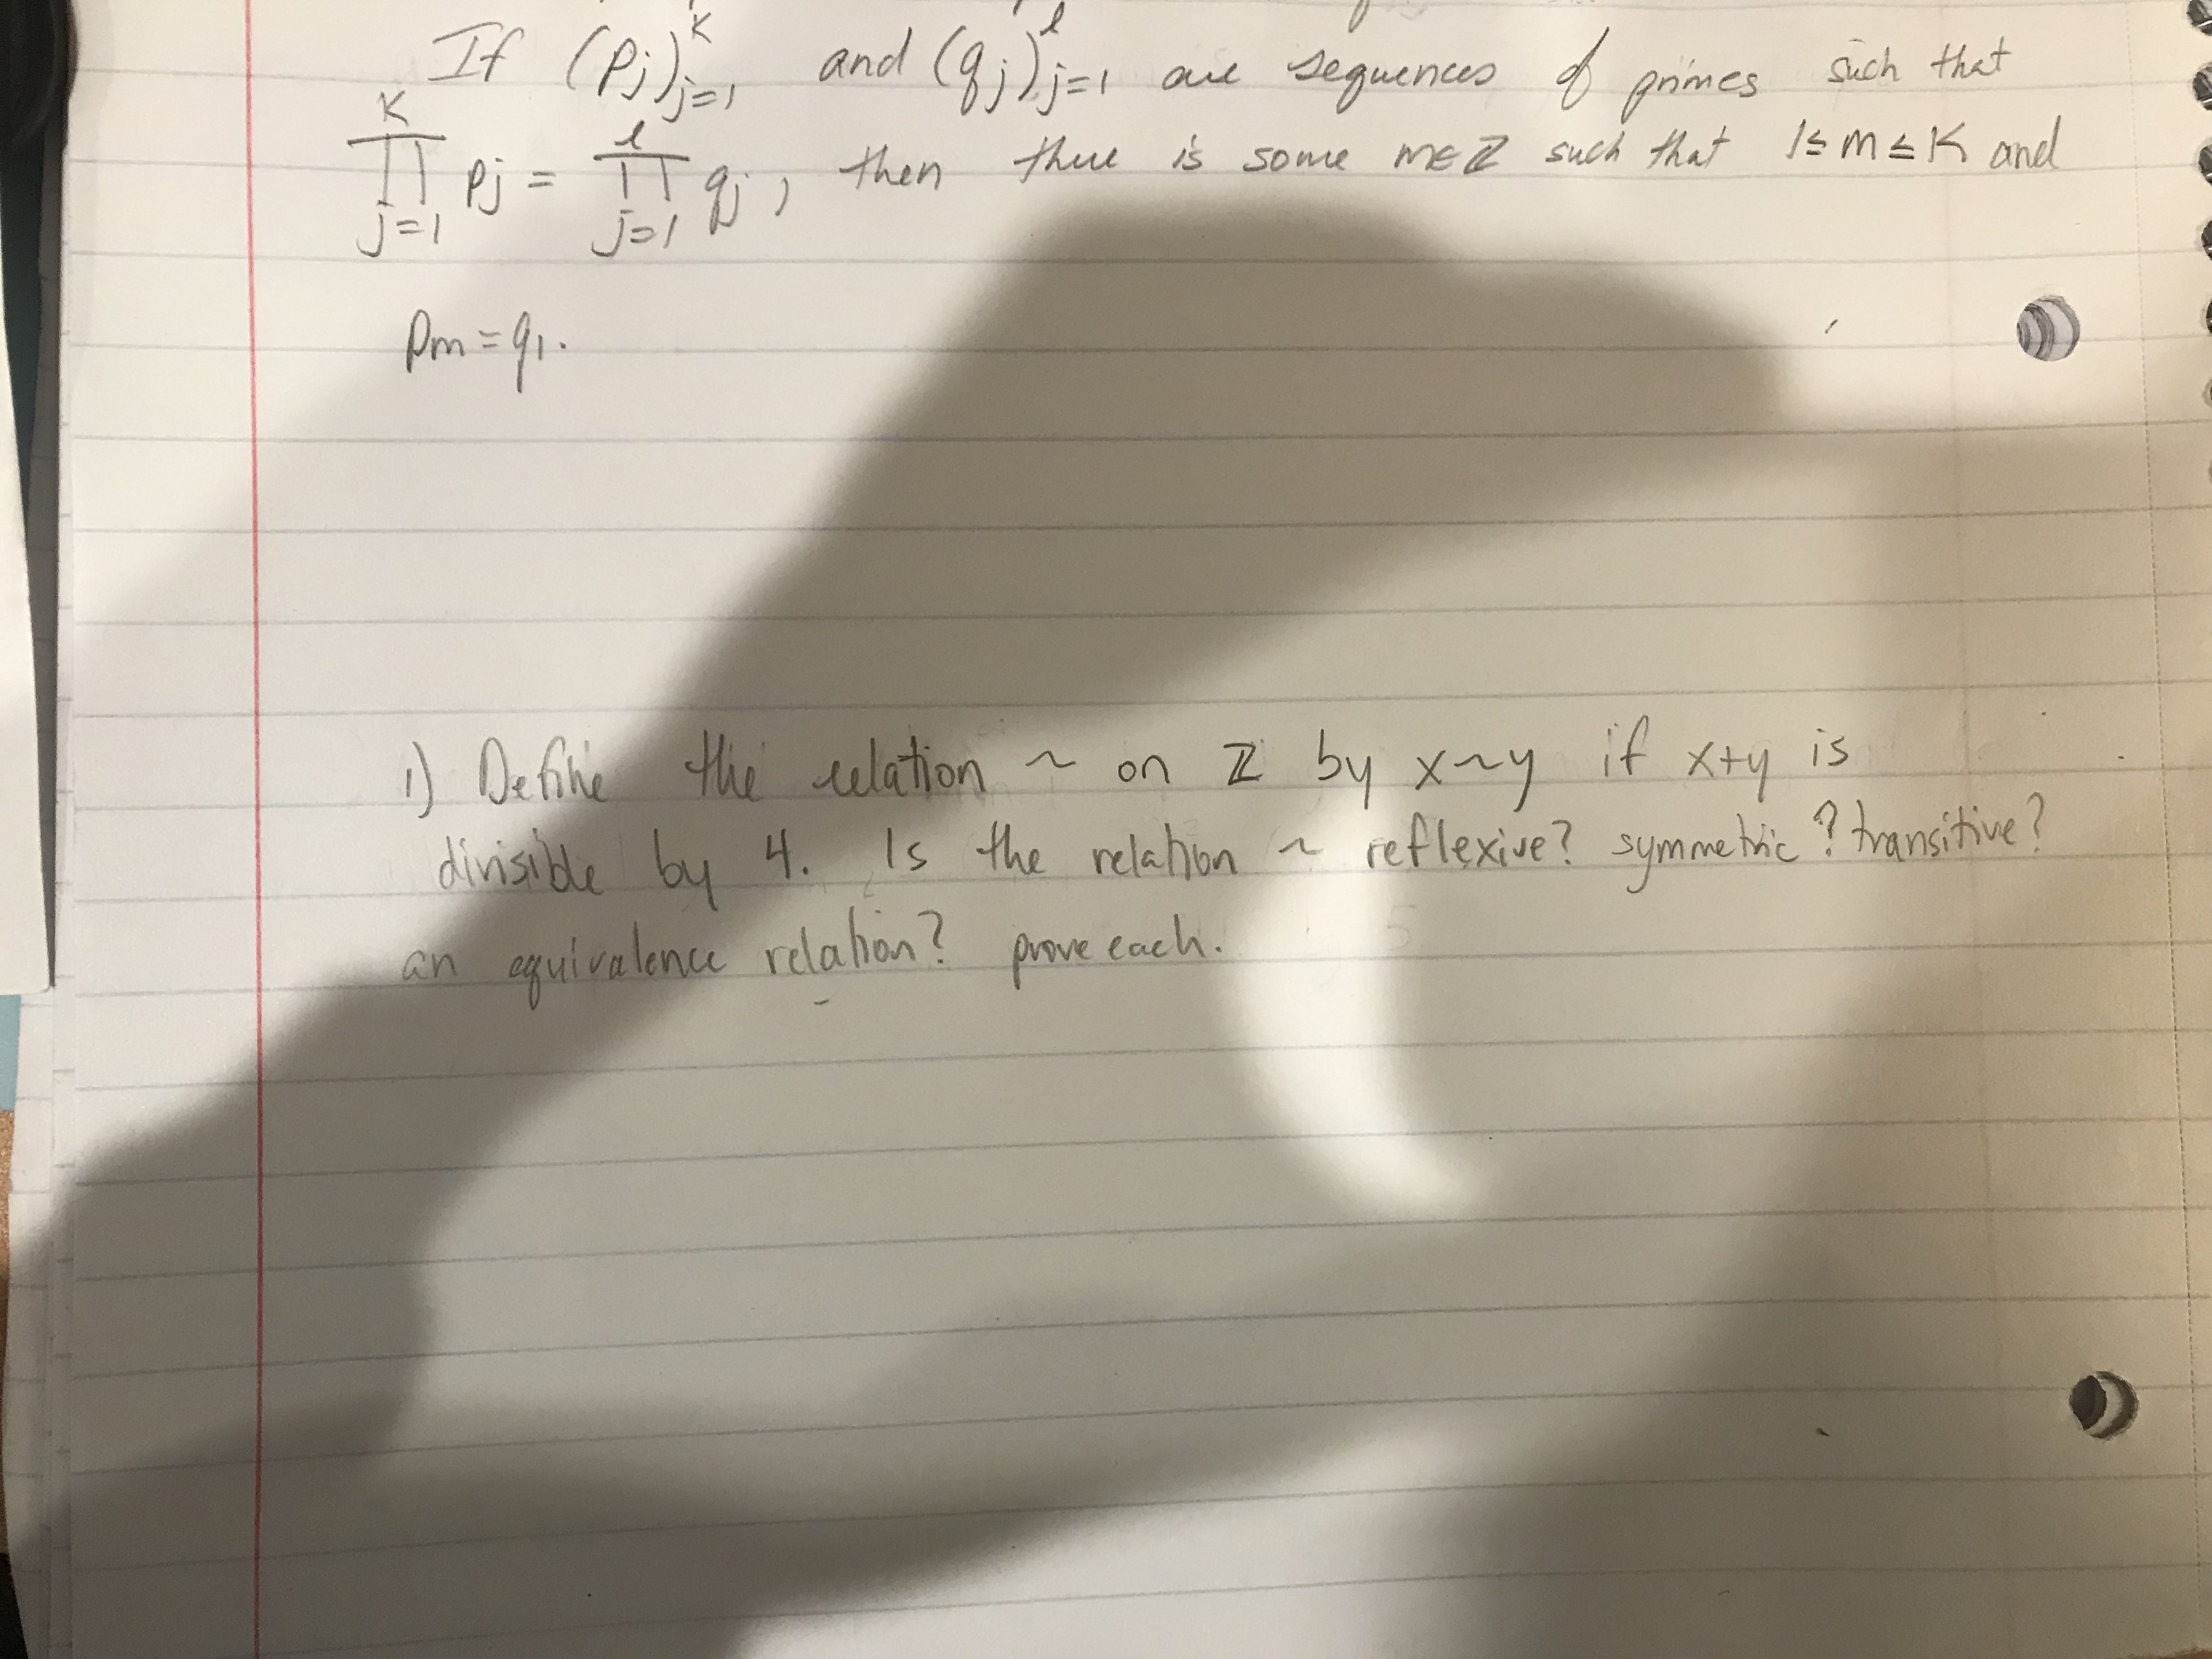 If (pj)ᴷj=1 and (qj)ˡj=1 are sequences of primes such that
K∏j=1 pj = l∏j=1 qj, then there is some m∈ℤ such that 1≤m≤K and
pm=q1.
1) Define the relation ~ on ℤ by x~y if x+y is
divisible by 4. Is the relation ~ reflexive? symmetric? transitive?
an equivalence relation? prove each.